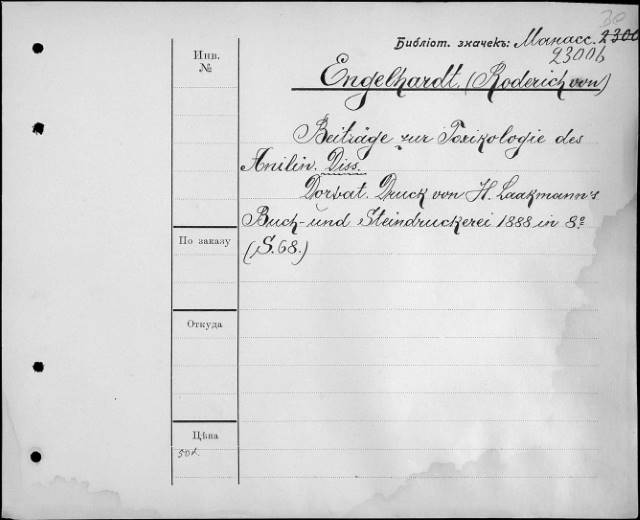 30
Библіот. значекъ: Манасс. 2300
2300b
Инв.
№
Engelhardt. (Roderich von)
Beiträge zur Toxikologie des
Anilin. Diss.
Dorpat. Druck von H. Laakmann's
Buch- und Steindruckerei 1888 in 8º
(S. 68.)
По заказу
Откуда
Цѣна
50к.